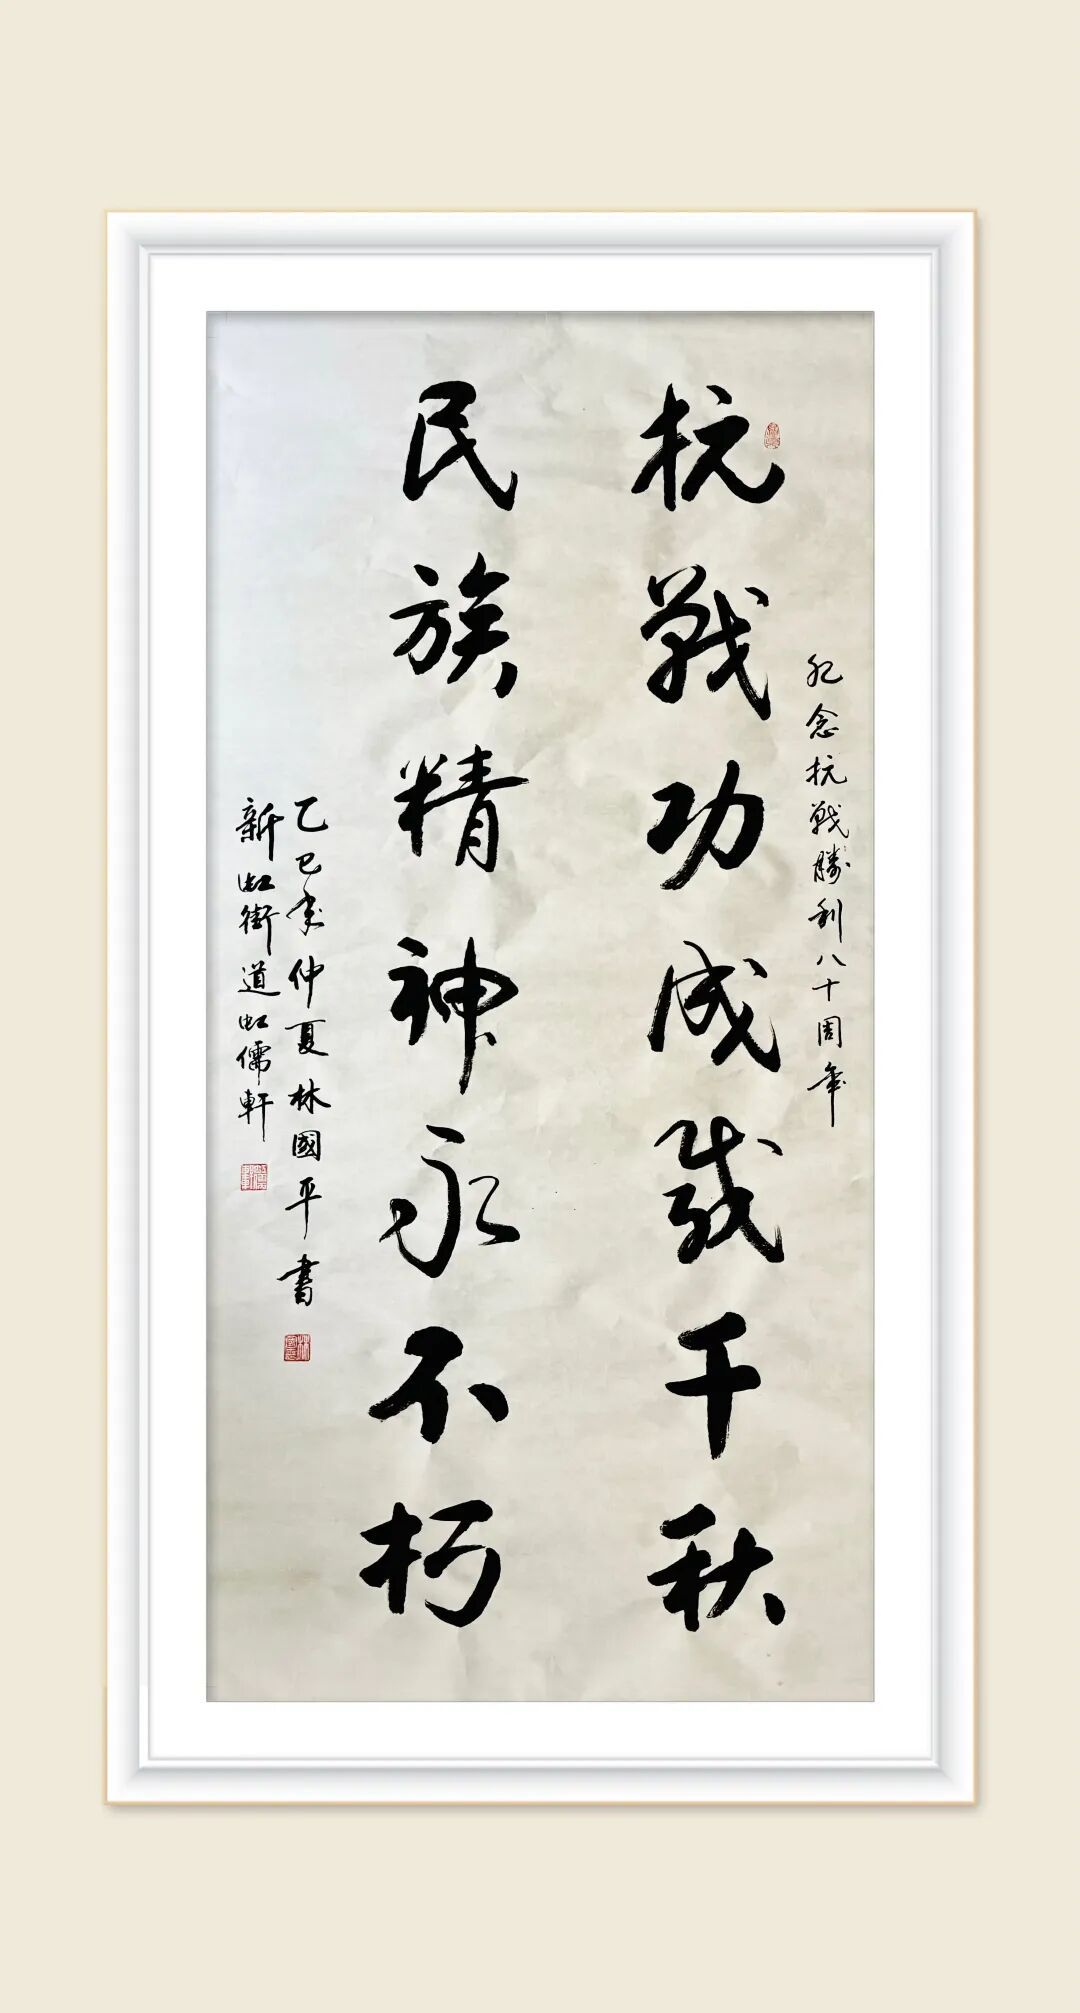 紀念抗戰勝利八十周年
抗戰功成載千秋
民族精神永不朽
乙巳年仲夏林國平書
新虹街道虹儒軒